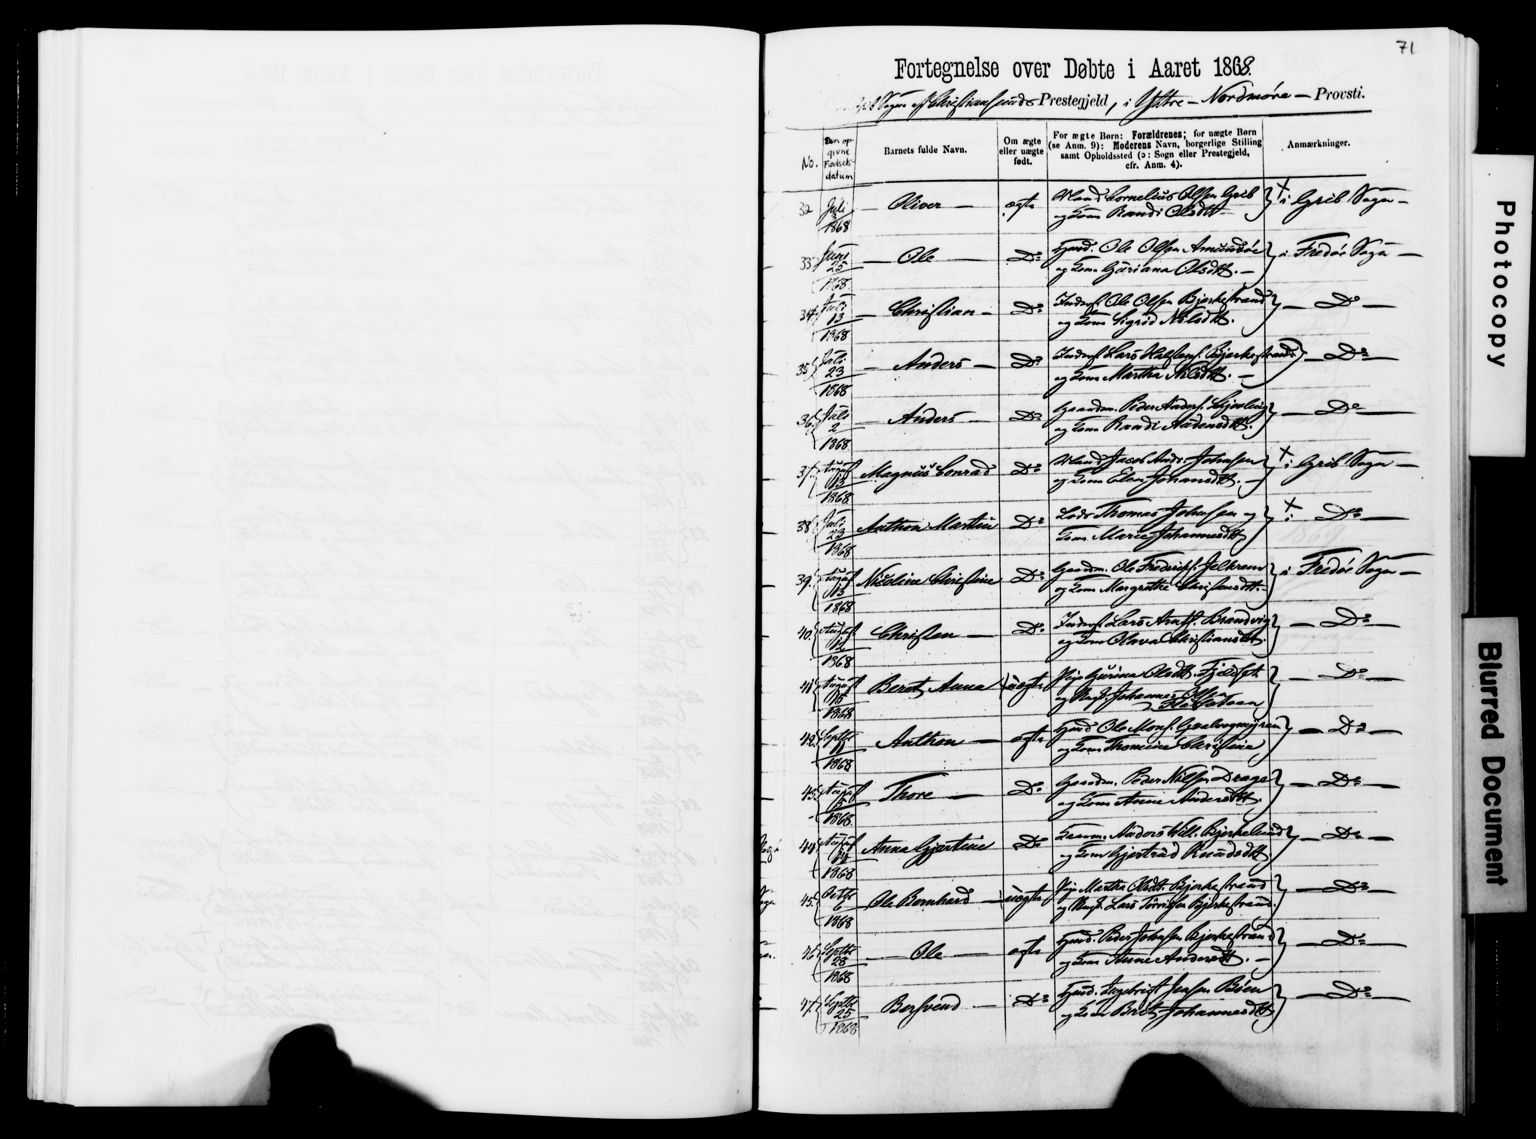 71
Fortegnelse over Døbte i Aaret 1868.
Sogn af Christianssunds Prestegjeld, i Ytre - Nordmøre - Provsti.
No.
Den op-
givne
Fødsels-
datum
Barnets fulde Navn.
Om ægte
eller uægte
født.
For ægte Børn: Forældrenes; for uægte Børn
(se Anm. 9): Moderens Navn, borgerlige Stilling
samt Opholdssted (ɔ: Sogn eller Prestegjeld,
cfr. Anm. 4).
Anmærkninger.
32 Juli 1868 — Oliver — ægte Cornelius Olsen Grib
og Kone Randi Olsdtr — + i Grib Sogn —
33 Juni 25 1868 — Ole — Do Husmd. Ole Olsen
og Kone Guriana Olsdtr. — i Fredøe Sogn —
34 Juli 13 1868 — Christian — Do Inderst Ole Olsen Bjerkestrand
og Kone Sigrid Nilsdtr. — Do —
35 Juli 23 1868 — Anders — Do Inderst Lars Bjerkestrand
og Kone Martha Nilsdtr. — Do —
36 Juli 2 1868 — Anders — Do Gaardm. Peder Anders.
og Kone Randi — Do —
37 August 13 1868 Magnus Conrad Do Jacob Andr. Johansen
og Kone Elen Johansdtr. — + i Grib Sogn —
38 Juli 23 1868 Anthon Martin Do Lods Thomas Johansen og
Kone Marie Johannesdtr + i Do —
39. August 13 1868 Nicoline Christine Do Gaardm. Ole Fredrichs.
og Kone Margrethe Christensdtr. — i Fredøe Sogn —
40. August 12 1868 Christen — Do Inderst Lars Brandvig
og Kone Olava Christiansdtr. — Do —
41 August 15 1868 Beret Anna uægte Pige Gurina Olsdtr.
og Ungk. Johannes Olsen — Do —
42. Septbr 11 1868 Anthon — ægte Husmd Ole Mons.
og Kone Thomine Christine — Do —
43. August 5 1868 Thore — Do Gaardm. Peder Nilsen Drage
og Kone Anne Andersdtr — Do —
44 August 14 1868 Anna Gjertine Do Anders Will. Bjerkelund
og Kone Gjertrud Knudsdtr — Do —
45. Octbr 6 1868 Ole Bernhard — uægte Pige Martha Olsdtr. Bjerkestrand
og Ungk. Lars Bjerkestrand. — Do —
46 Septbr 28 1868 — Ole — ægte Husmd. Peder Johnsen Bjerkestrand
og Kone Anne Andersdtr. — — Do —
47. Septbr 25 1868 Bersvend — Do Husmd. Ingebrigt Jensen Bøen
og Kone Berit Johannesdtr — Do —
Photocopy
Blurred Document